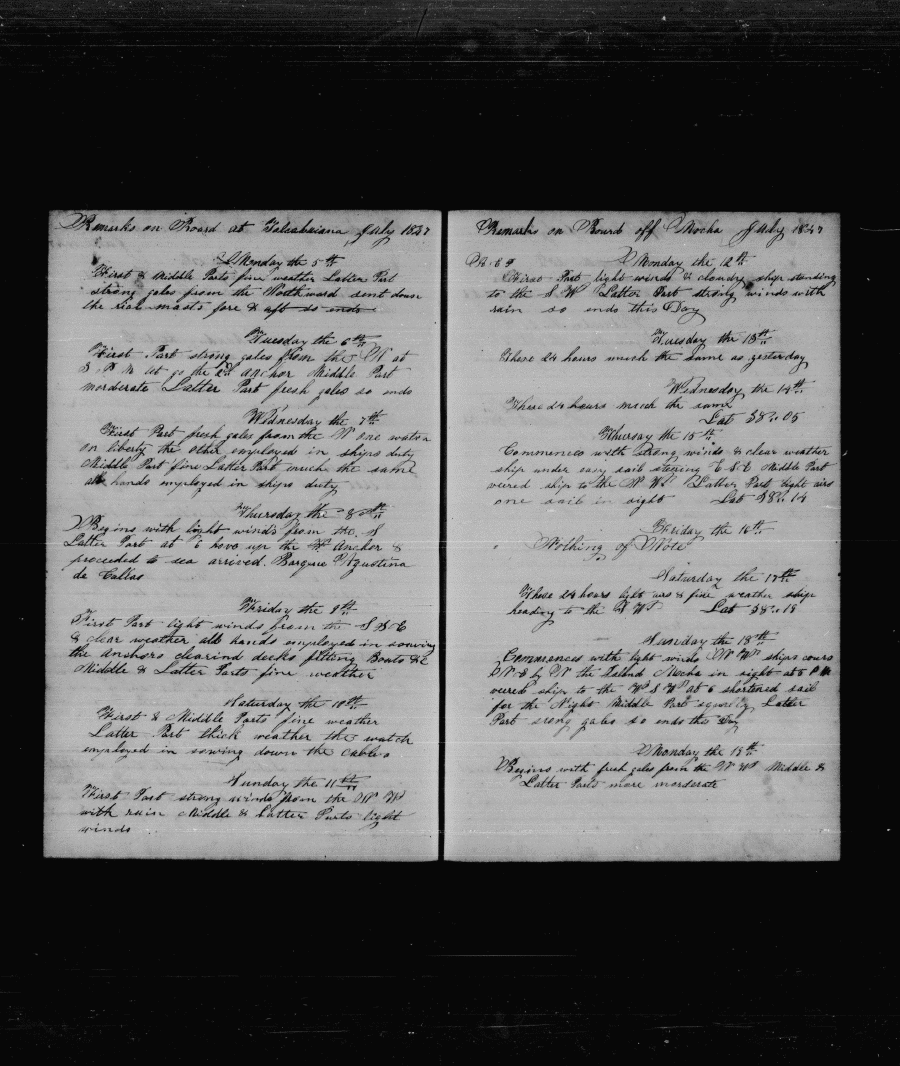 Remarks on Board at Talcahuana July 1847
Monday the 5th
First & Middle Parts fine weather Latter Part
strong gales from the Northward sent down
the rial masts fore & aft so ends
Tuesday the 6th
First Part strong gales from the N at
3 P M let go the 2d anchor Middle Part
morderate Latter Part fresh gales so ends
Wednesday the 7th
First Part fresh gales from the N one watch
on liberty the other employed in ships duty
Middle Part fine Latter Part much the same
all hands employed in ships duty
Thursday the 8th
Begins with light winds from the S
Latter Part at 6 hove up the Anchor &
proceded to sea arrived Barque Agustina
de Callao
Friday the 9th
First Part light winds from the S & E
& clear weather all hands employed in sowing
the anchors clearind decks fitting Boats &c
Middle & Latter Parts fine weather
Saturday the 10th
First & Middle Parts fine weather
Latter Part thick weather the watch
employed in sowing down the cables
Sunday the 11th
First Part strong winds from the N W
with rain Middle & Latter Parts light
winds
Remarks on Board off Mocha July 1847
Monday the 12th
First Part light winds & cloudy ship standing
to the S W Latter Part strong winds with
rain so ends this Day
Tuesday the 13th
These 24 hours much the same as yesterday
Wednesday the 14th
These 24 hours much the same
Lat 38.. 05
Thursay the 15th
Commences with strong winds & clear weather
ship under easy sail steering E S E Middle Part
veered ship to the W Latter Part light airs
one sail in sight Lat 38.. 14
Friday the 16th
Nothing of Note
Saturday the 17th
These 24 hours light airs & fine weather ship
heading to the W Lat 38.. 18
Sunday the 18th
Commences with light winds N W ships cours
N E by N the Island Mocha in sight at 5 P M
veered ship to the W S W at 6 shortened sail
for the Night Middle Part squaly Latter
Part srong gales so ends this Day
Monday the 19th
Begins with fresh gales from the N W Middle &
Latter Parts more morderate